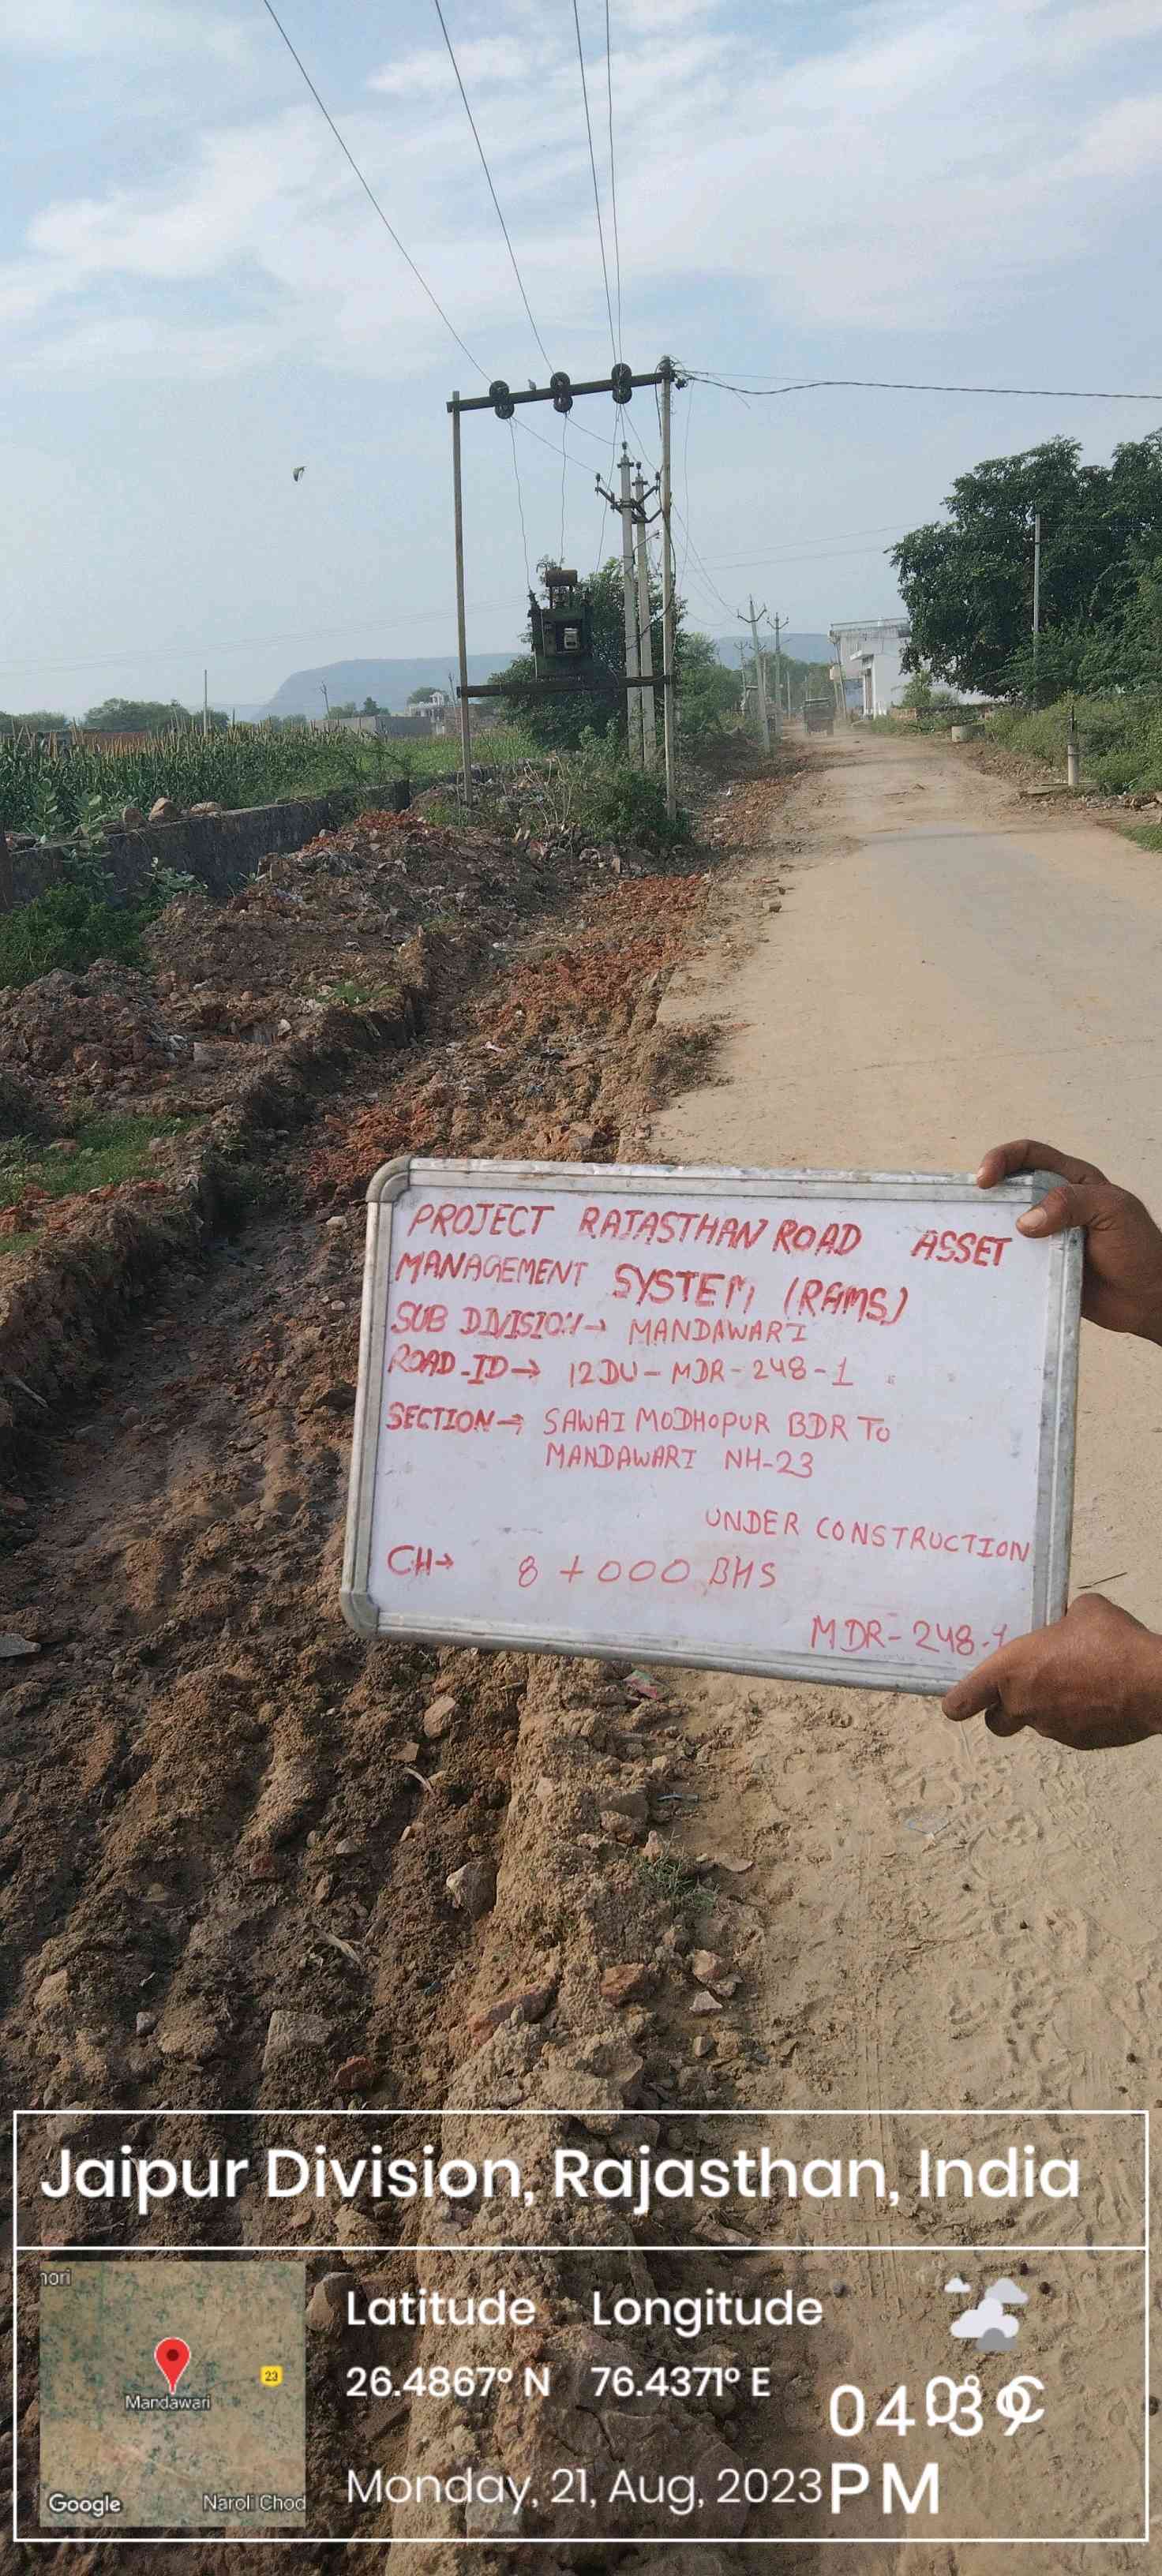 PROJECT RAJASTHAN ROAD ASSET
MANAGEMENT SYSTEM (RAMS)
SUB DIVISION→ MANDAWARI
ROAD-ID→ 12DU-MDR-248-1
SECTION→ SAWAI MODHOPUR BDR TO
MANDAWARI NH-23
UNDER CONSTRUCTION
CH→ 8+000 BHS
MDR-248-1
Jaipur Division, Rajasthan, India
nori
23
Mandawari
Google
Naroli Chod
Latitude Longitude
26.4867° N 76.4371° E
Monday, 21, Aug, 2023 PM